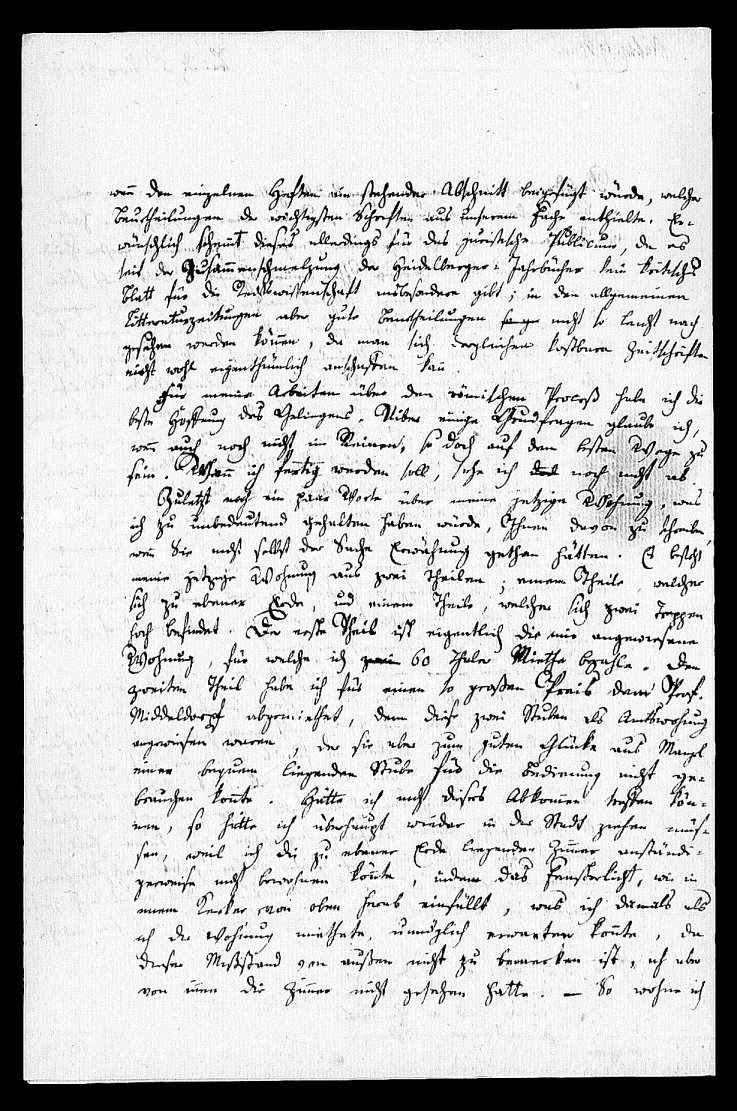 wenn den einzelnen Heften ein stehender Abschnitt beigefügt würde, welcher
Beurtheilungen der wichtigsten Schriften aus unserem Fache enthielte. Er-
wünschlich scheint dieses allerdings für das juristische Publicum, da es
seit der Zusammenschmelzung der Heidelberger-Jahrbücher kein kritisches
Blatt für die Rechtswissenschaft insbesondere gibt; in den allgemeinen
Litteraturzeitungen aber gute Beurtheilungen nicht so leicht nach
gesehen werden können, da man sich dergleichen kostbare Zeitschriften
nicht wohl eigenthümlich anschaffen kann.
Für meine Arbeiten über den römischen Proceß habe ich die
beste Hoffnung des Gelingens. Ueber einige Grundfragen glaube ich,
wenn auch noch nicht im Reinen, so doch auf dem besten Wege zu
sein. Wann ich fertig werden soll, sehe ich noch nicht ab.
Zuletzt noch ein paar Worte über meine jetzige Wohnung, was
ich zu unbedeutend gehalten haben würde, Ihnen davon zu schreiben,
wenn Sie nicht selbst der Sache Erwähnung gethan hätten. Es besteht
meine jetzige Wohnung aus zwei Theilen; einem Theile, welcher
sich zu ebener Erde, und einem Theile, welcher sich zwei Treppen
hoch befindet. Der erste Theil ist eigentlich die mir angewiesene
Wohnung, für welche ich 60 Thaler Miethe bezahle. Den
zweiten Theil habe ich für einen so großen Preis dem Prof.
Middeldorpf abgemiethet, dem diese zwei Stuben als Amtswohnung
angewiesen waren, der sie aber zum guten Glücke aus Mangel
einer bequem liegenden Stube für die Bedienung nicht ge-
brauchen konnte. Hätte ich nicht dieses Abkommen treffen kön-
nen, so hätte ich überhaupt wieder in die Stadt ziehen müs-
sen, weil ich die zu ebener Erde liegenden Zimmer anständi-
gerweise nicht bewohnen könnte, indem das Fensterlicht, wie in
einem Kerker von oben herab einfällt, was ich damals als
ich die Wohnung miethete, unmöglich erwarten konnte, da
dieser Mißstand von außen nicht zu bemerken ist, ich aber
von innen die Zimmer nicht gesehen hatte. — So wohne ich